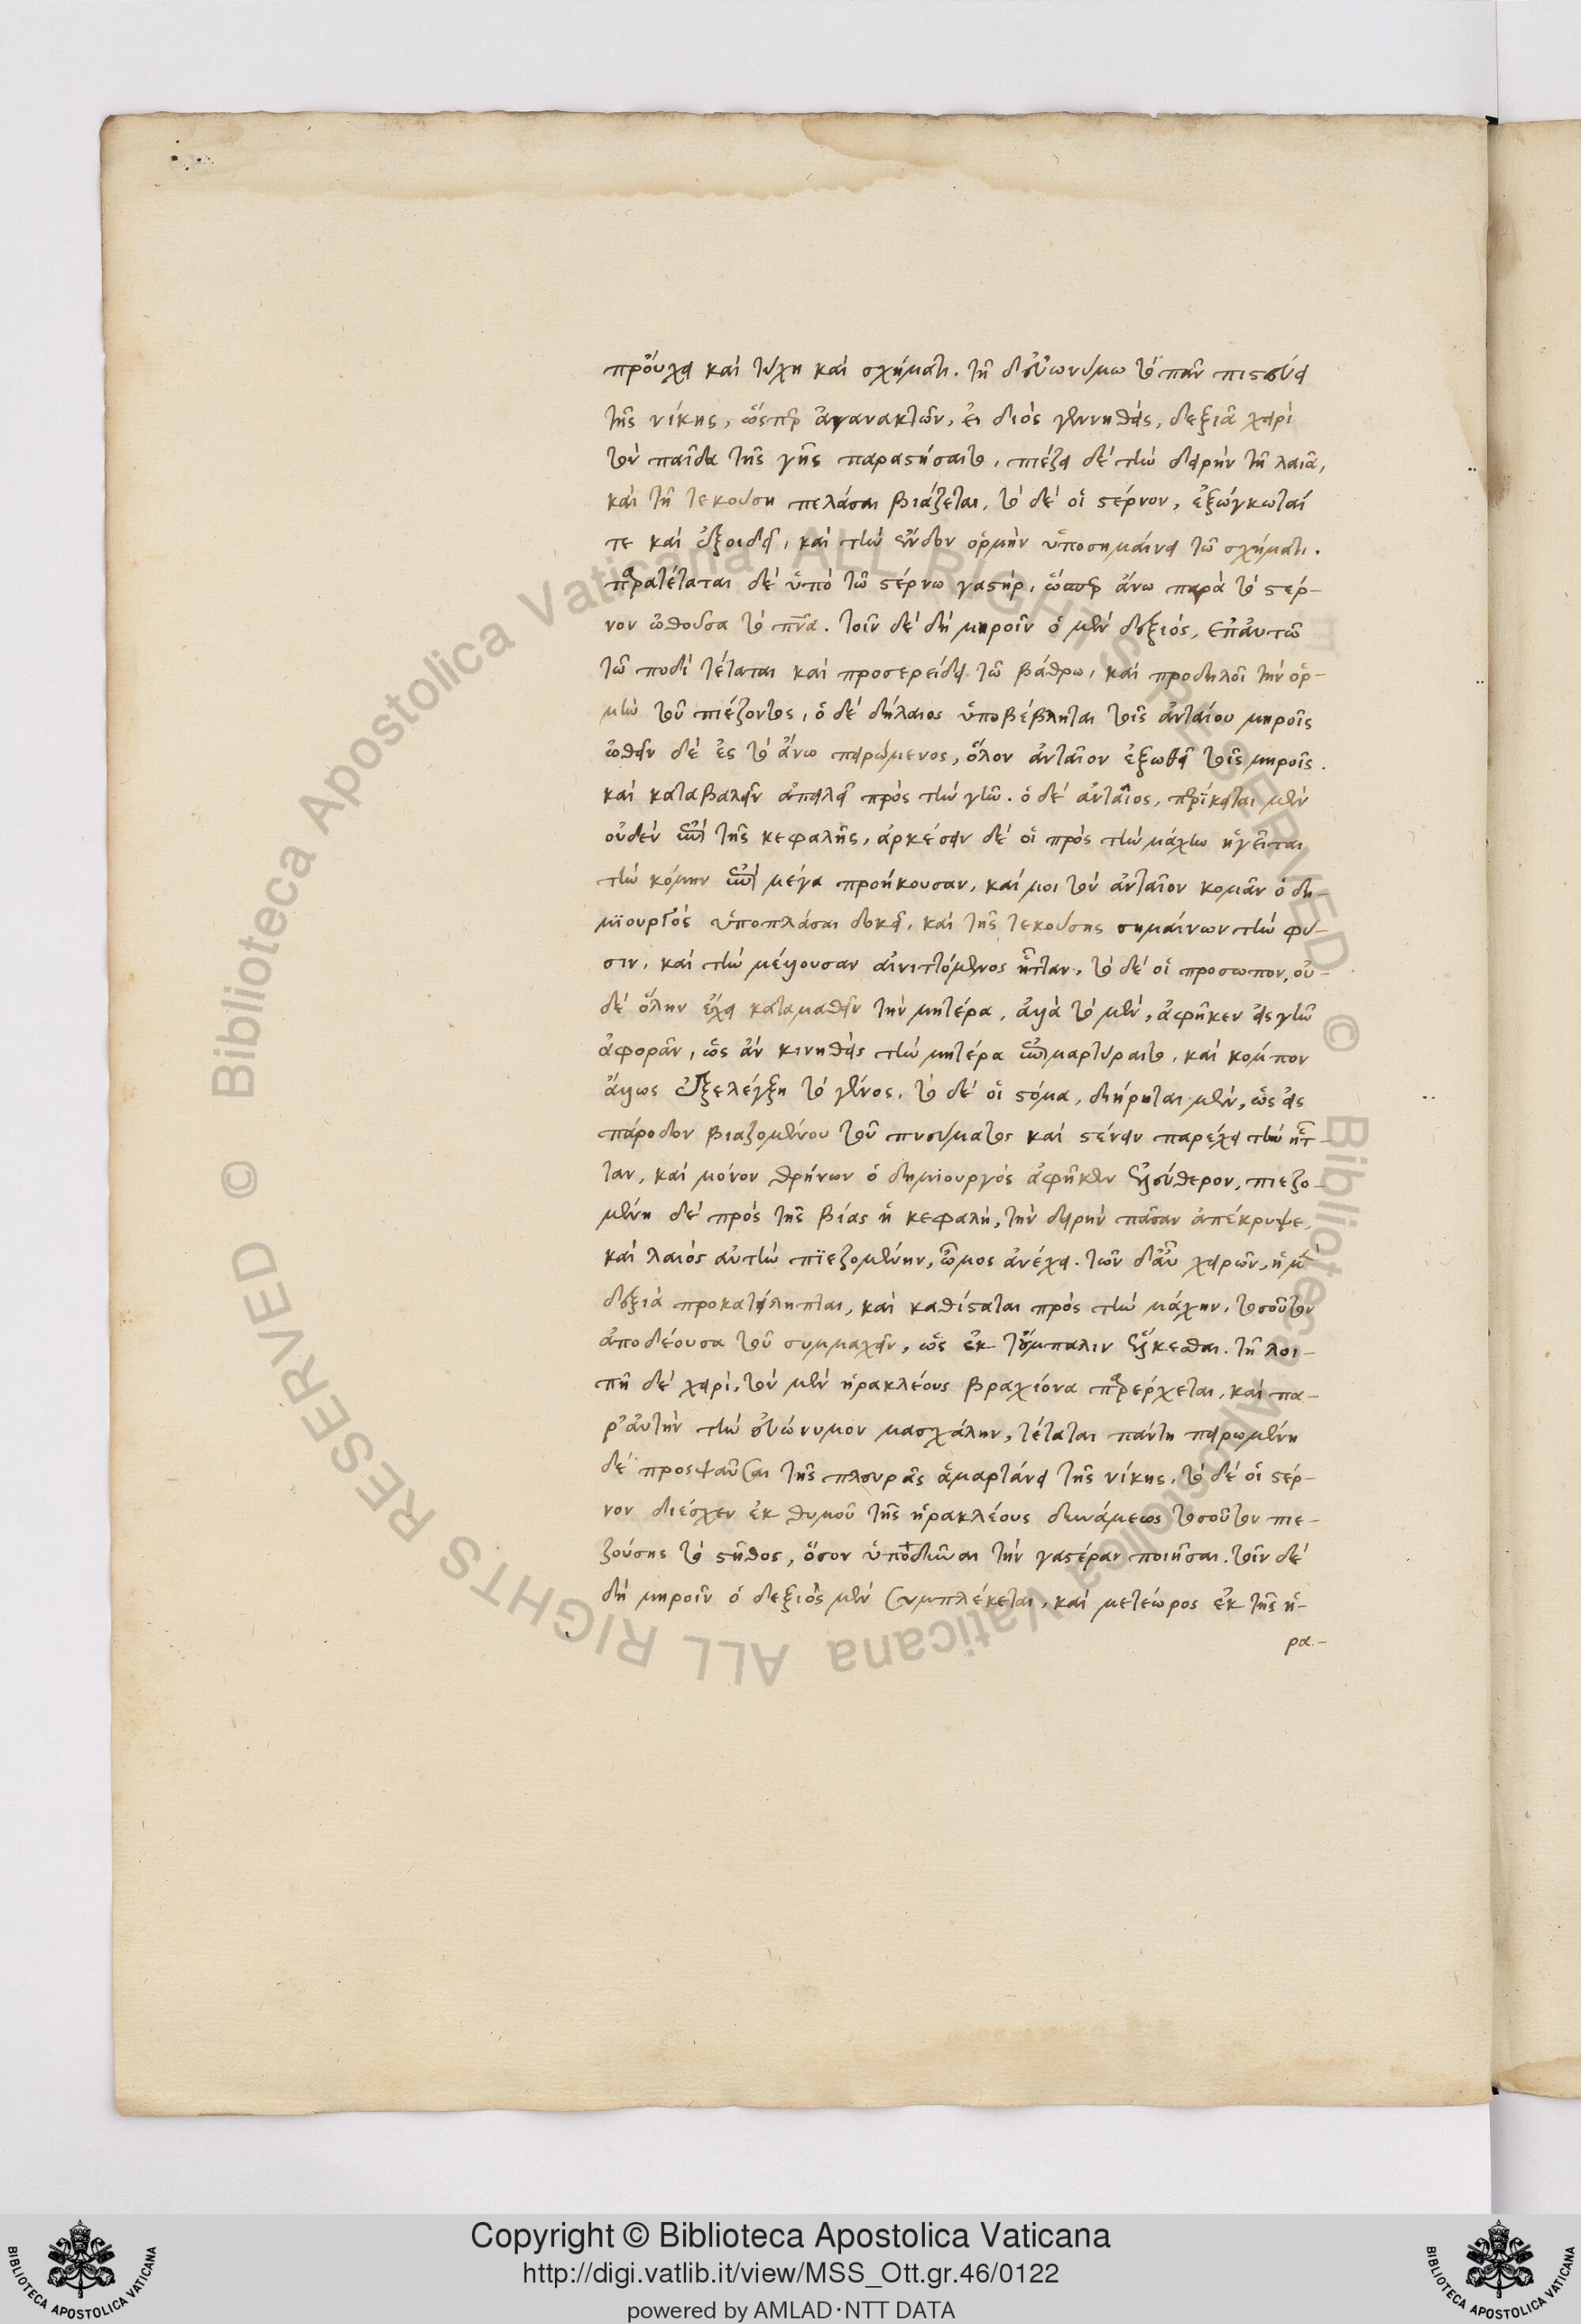 προύχει καὶ τύχη καὶ σχήματι. τῆ δ' εὐωνύμω τὸ πᾶν πιστεύει
τῆς νίκης, ὥσπερ ἀγανακτῶν, εἰ διὸς γεννηθεὶς, δεξιᾶ χειρὶ
τὸν παῖδα τῆς γῆς παραστήσαιτο, πιέζει δὲ τὴν δειρὴν τῆ λαιᾶ,
καὶ τῆ τεκούση πελάσαι βιάζεται, τὸ δέ οἱ στέρνον, ἐξώγκωταί
τε καὶ ἐξοιδεῖ, καὶ τὴν ἔνδον ὁρμὴν ὑποσημαίνει τῶ σχήματι.
παρατέταται δὲ ὑπὸ τῶ στέρνω γαστὴρ, ὥσπερ ἄνω παρὰ τὸ στέρ-
νον ὠθοῦσα τὸ πνα. τοῖν δὲ δὴ μηροῖν ὁ μὲν δεξιός, ἐπ' αὐτῶ
τῶ ποδὶ τέταται καὶ προσερείδει τῶ βάθρω, καὶ προδηλοῖ τὴν ὁρ-
μὴν τοῦ πιέζοντος, ὁ δὲ δὴ λαιὸς ὑποβέβληται τοῖς ἀνταίου μηροῖς
ὠθεῖν δὲ ἐς τὸ ἄνω πειρώμενος, ὅλον ἀνταῖον ἐξωθεῖ τοῖς μηροῖς.
καὶ καταβαλεῖν ἀπειλεῖ πρὸς τὴν γῆν. ὁ δὲ ἀνταῖος, περίκειται μὲν
οὐδὲν ἐπὶ τῆς κεφαλῆς, ἀρκέσειν δέ οἱ πρὸς τὴν μάχην ἡγεῖται
τὴν κόμην ἐπὶ μέγα προήκουσαν, καί μοι τὸν ἀνταῖον κομᾶν ὁ δη-
μϊουργὸς ὑποπλάσαι δοκεῖ, καὶ τῆς τεκούσης σημαίνων τὴν φύ-
σιν, καὶ τὴν μέλλουσαν αἰνιττόμενος ἧτταν, τὸ δέ οἱ προσωπον, οὐ-
δὲ ὅλην ἔχει καταμαθεῖν τὴν μητέρα, ἀλλὰ τὸ μὲν, ἀφῆκεν εἰς γῆν
ἀφορᾶν, ὡς ἂν κινηθεὶς τὴν μητέρα ἐπιμαρτύραιτο, καὶ κομπον
ἄλλως ἐξελέγξη τὸ γένος, τὸ δέ οἱ στόμα, διήρηται μὲν, ὡς εἰς
πάροδον βιαζομένου τοῦ πνεύματος καὶ στένειν παρέχει τὴν ἧτ-
ταν, καὶ μόνον θρήνων ὁ δημιουργὸς ἀφῆκεν ἐλεύθερον, πιεζο-
μένη δὲ πρὸς τῆς βίας ἡ κεφαλὴ, τὴν δειρὴν πᾶσαν ἀπέκρυψε,
καὶ λαιὸς αὐτὴν πϊεζομένην, ὦμος ἀνέχει. τῶν δ' αὖ χειρῶν, ἡ μὲν
δεξιὰ προκατείληπται, καὶ καθίσταται πρὸς τὴν μάχην, τοσοῦτον
ἀποδέουσα τοῦ συμμαχεῖν, ὡς ἐκ τοὔμπαλιν ἕλκεσθαι. τῆ λοι-
πῆ δὲ χειρὶ, τὸν μὲν ἡρακλέους βραχίονα περιέρχεται, καὶ πα-
ρ' αὐτὴν τὴν εὐώνυμον μασχάλην, τέταται πάντη πειρωμένη
δὲ προσψαῦσαι τῆς πλευρᾶς ἁμαρτάνει τῆς νίκης, τὸ δέ οἱ στέρ-
νον διέσχεν ἐκ θυμοῦ τῆς ἡρακλέους δυνάμεως τοσοῦτον πιε-
ζούσης τὸ στῆθος, ὅσον ὑποδῦναι τὴν γαστέραν ποιῆσαι. τοῖν δὲ
δὴ μηροῖν ὁ δεξιὸς μὲν συμπλέκεται, καὶ μετέωρος ἐκ τῆς ἡ-
ρα-
Copyright © Biblioteca Apostolica Vaticana
http://digi.vatlib.it/view/MSS_Ott.gr.46/0122
powered by AMLAD·NTT DATA